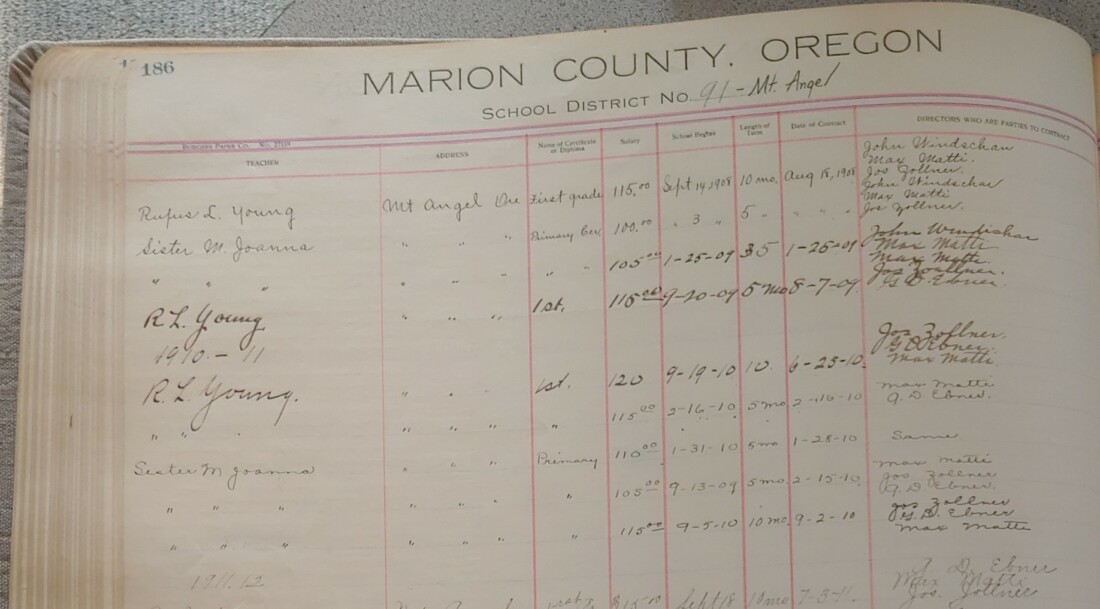 186
MARION COUNTY, OREGON
SCHOOL DISTRICT No. 91 - Mt. Angel
TEACHER ADDRESS Name of Certificate or Diploma Salary School Begins Length of Term Date of Contract DIRECTORS WHO ARE PARTIES TO CONTRACT
John Windschau
Max Matti.
Jos Zollner.
Rufus L. Young Mt Angel Ore First grade 115.00 Sept 14, 1908 10 mo. Aug 18, 1908
John Windschau
Max Matti
Jos Zollner.
Sister M. Joanna " " " Primary Cer 100.00 " 3 " 5 " " " "
John Windishar
Max Matti
" " " " " " " " 105.00 1-25-09 5 1-25-09
Max Matti.
Jos Zoellner.
G D Ebner.
R L. Young " " " 1st. 115.00 9-20-09 5 mo 8-7-09
1910 - 11
Jos Zollner.
G D Ebner.
Max Matti.
R. L. Young. " " " 1st. 120 9-19-10 10. 6-25-10.
Max Matti
G. D. Ebner.
" " " " " " " 115.00 2-16-10 5 mo 2-16-10
Sister M Joanna " " " Primary 110.00 1-31-10 5 mo. 1-28-10 Same
Max Matti
Jos Zollner
G. D. Ebner
" " " " " " " 105.00 9-13-09 5 mo. 2-15-10.
Jos Zollner
G. D. Ebner
Max Matti
" " " " " " " 115.00 9-5-10 10 mo. 9-2-10
1911.12
G. D. Ebner
Max Matti
Jos. Zollner
Sept 18 10 mo 7-3-11.